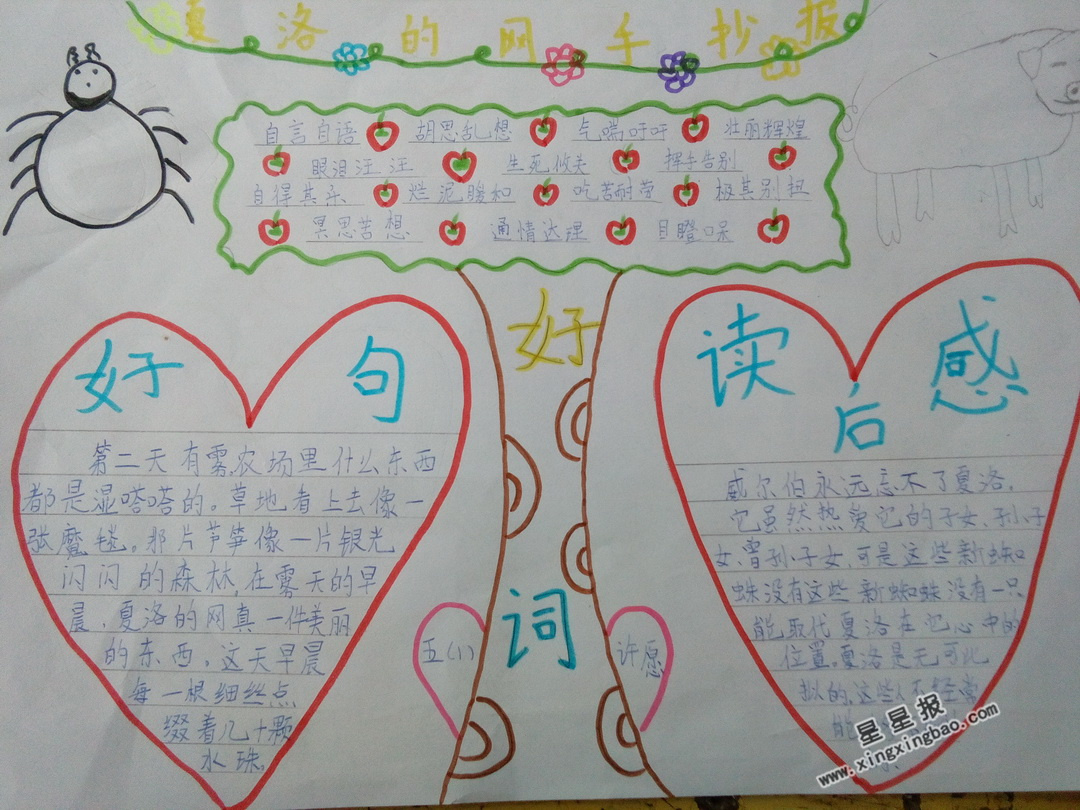 夏洛的网手抄报
自言自语 胡思乱想 气喘吁吁 壮丽辉煌
眼泪汪汪 生死攸关 挥手告别
自得其乐 烂泥睃和 吃苦耐劳 极其别扭
冥思苦想 通情达理 目瞪口呆
好词
好句
第二天有雾,农场里什么东西
都是湿嗒嗒的。草地看上去像一
张魔毯。那片芦笋像一片银光
闪闪的森林,在雾天的早
晨,夏洛的网真一件美丽
的东西。这天早晨
每一根细丝点
缀着几十颗
水珠。
读后感
威尔伯永远忘不了夏洛。
它虽然热爱它的子女、孙子
女、曾孙子女,可是这些新蜘
蛛没有这些新蜘蛛没有一只
能取代夏洛在它心中的
位置。夏洛是无可比
拟的,这些人不经常
能
五(1)
许愿
星星报
www.xingxingbao.com